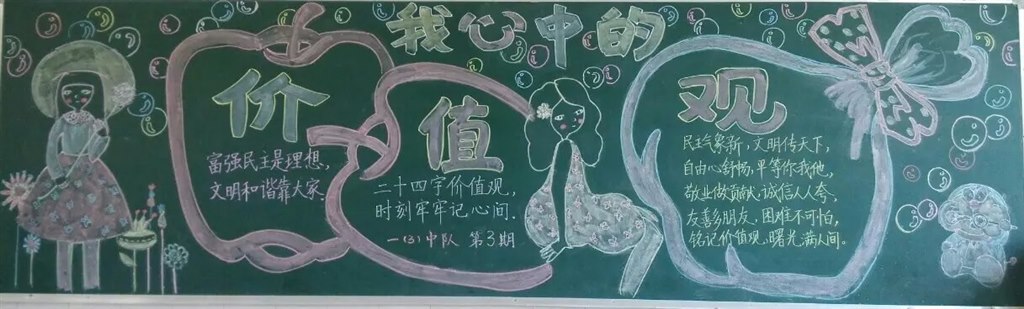 我心中的
价
富强民主是理想，
文明和谐靠大家.
值
二十四字价值观，
时刻牢牢记心间.
一(3)中队 第3期
观
民主气象新，文明传天下，
自由心舒畅，平等你我他，
敬业做贡献，诚信人人夸，
友善多朋友，困难不可怕，
铭记价值观，曙光满人间。